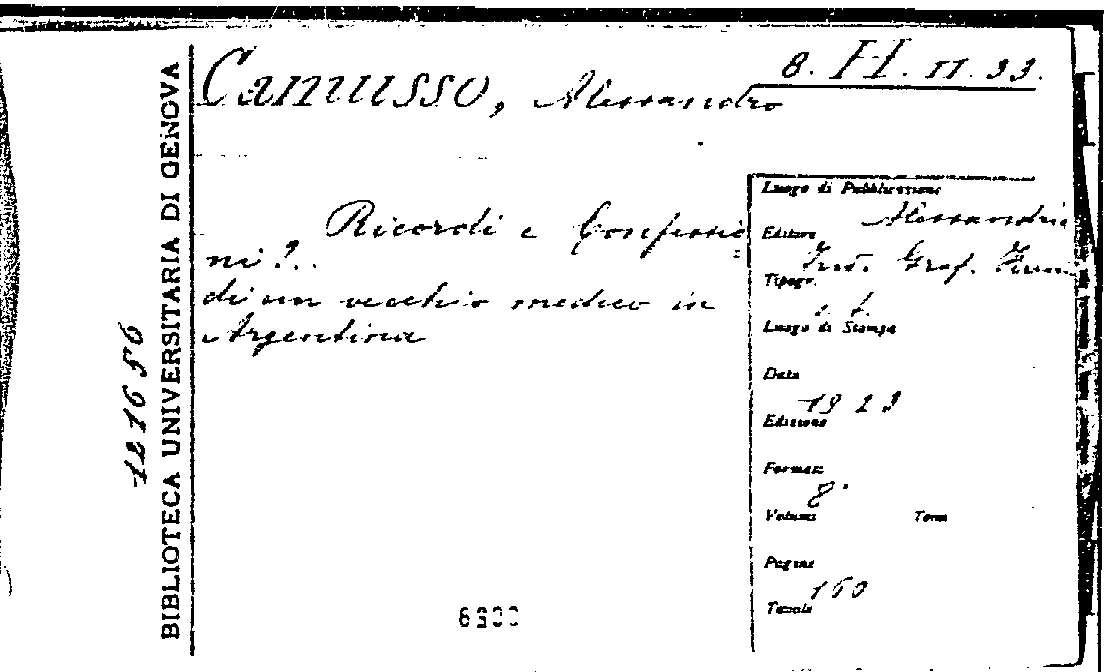 8. H. II. 33.
Camusso, Alessandro
Ricordi e Confessio
ni?..
di un vecchio medico in
Argentina
Luogo di Pubblicazione
Alessandria
Editore
Graf.
Tipogr.
Luogo di Stampa
Data
Edizione
Formato
8°
Volumi Tomi
Pagine
160
Tavole
BIBLIOTECA UNIVERSITARIA DI GENOVA
121656